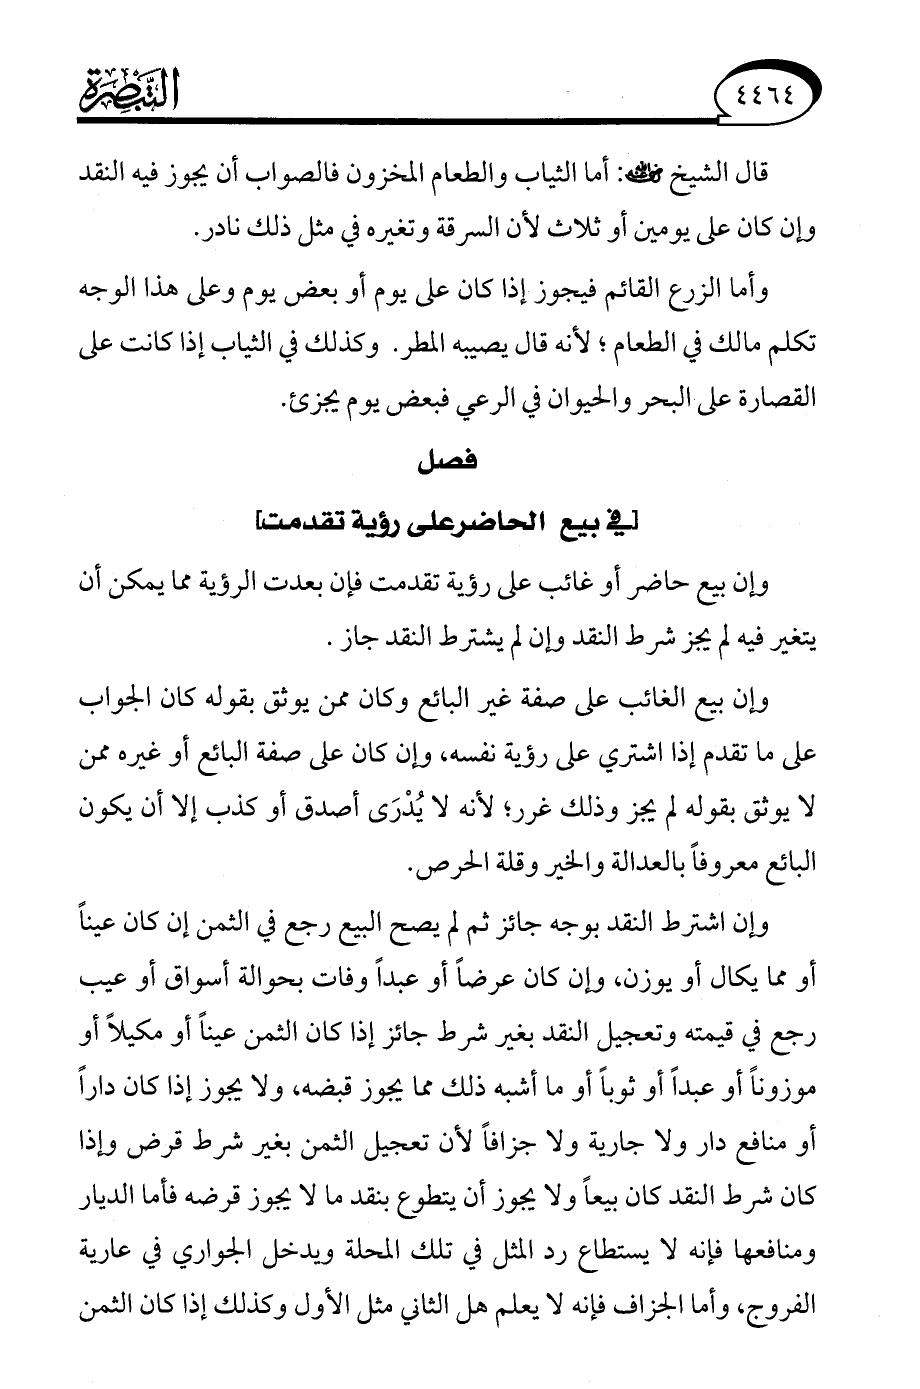 التبصرة
٤٤٦٤
قال الشيخ رحمه الله: أما الثياب والطعام المخزون فالصواب أن يجوز فيه النقد
وإن كان على يومين أو ثلاث لأن السرقة وتغيره في مثل ذلك نادر.
وأما الزرع القائم فيجوز إذا كان على يوم أو بعض يوم وعلى هذا الوجه
تكلم مالك في الطعام ؛ لأنه قال يصيبه المطر. وكذلك في الثياب إذا كانت على
القصارة على البحر والحيوان في الرعي فبعض يوم يجزئ.
فصل
[في بيع الحاضر على رؤية تقدمت]
وإن بيع حاضر أو غائب على رؤية تقدمت فإن بعدت الرؤية مما يمكن أن
يتغير فيه لم يجز شرط النقد وإن لم يشترط النقد جاز .
وإن بيع الغائب على صفة غير البائع وكان ممن يوثق بقوله كان الجواب
على ما تقدم إذا اشتري على رؤية نفسه، وإن كان على صفة البائع أو غيره ممن
لا يوثق بقوله لم يجز وذلك غرر؛ لأنه لا يُدْرَى أصدق أو كذب إلا أن يكون
البائع معروفاً بالعدالة والخير وقلة الحرص.
وإن اشترط النقد بوجه جائز ثم لم يصح البيع رجع في الثمن إن كان عيناً
أو مما يكال أو يوزن، وإن كان عرضاً أو عبداً وفات بحوالة أسواق أو عيب
رجع في قيمته وتعجيل النقد بغير شرط جائز إذا كان الثمن عيناً أو مكيلاً أو
موزوناً أو عبداً أو ثوباً أو ما أشبه ذلك مما يجوز قبضه، ولا يجوز إذا كان داراً
أو منافع دار ولا جارية ولا جزافاً لأن تعجيل الثمن بغير شرط قرض وإذا
كان شرط النقد كان بيعاً ولا يجوز أن يتطوع بنقد ما لا يجوز قرضه فأما الديار
ومنافعها فإنه لا يستطاع رد المثل في تلك المحلة ويدخل الجواري في عارية
الفروج، وأما الجزاف فإنه لا يعلم هل الثاني مثل الأول وكذلك إذا كان الثمن